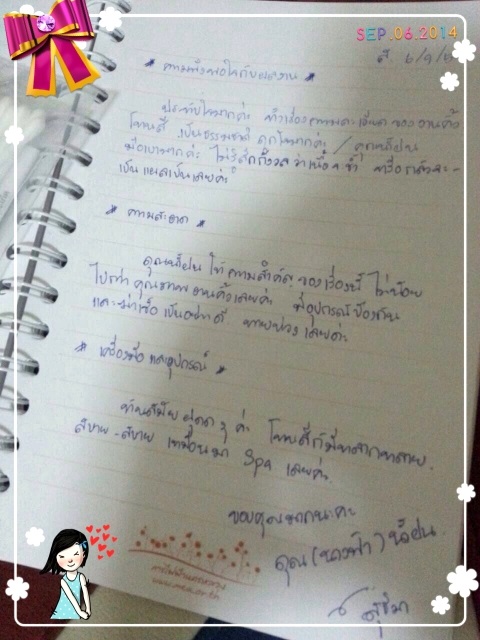 SEP.06.2014
ส. 6/9/
* ความพึงพอใจกับผลงาน *
ประทับใจมากค่ะ ทั้งเรื่องความละเอียด ของ งานคิ้ว
โทนสี เป็นธรรมชาติ ถูกใจมากค่ะ / คุณน้ำฝน
มือเบามากค่ะ ไม่รู้สึกกังวล ว่าเนื้อจะช้ำ หรือกลัวจะ-
เป็นแผลเป็นเลยค่ะ
* ความสะอาด *
คุณน้ำฝน ให้ความสำคัญ ของเรื่องนี้ ไม่น้อย
ไปกว่า คุณภาพ งานคิ้วเลยค่ะ มีอุปกรณ์ป้องกัน
และฆ่าเชื้อ เป็นอย่างดี หายห่วง เลยค่ะ
* เครื่องมือ และอุปกรณ์ *
ทันสมัย สุดๆ ค่ะ โทนสีก็มีหลากหลาย.
สบาย-สบาย เหมือนมา Spa เลยค่ะ.
ขอบคุณมากนะคะ
คุณ (นางฟ้า) น้ำฝน.
การไฟฟ้านครหลวง
www.mea.or.th